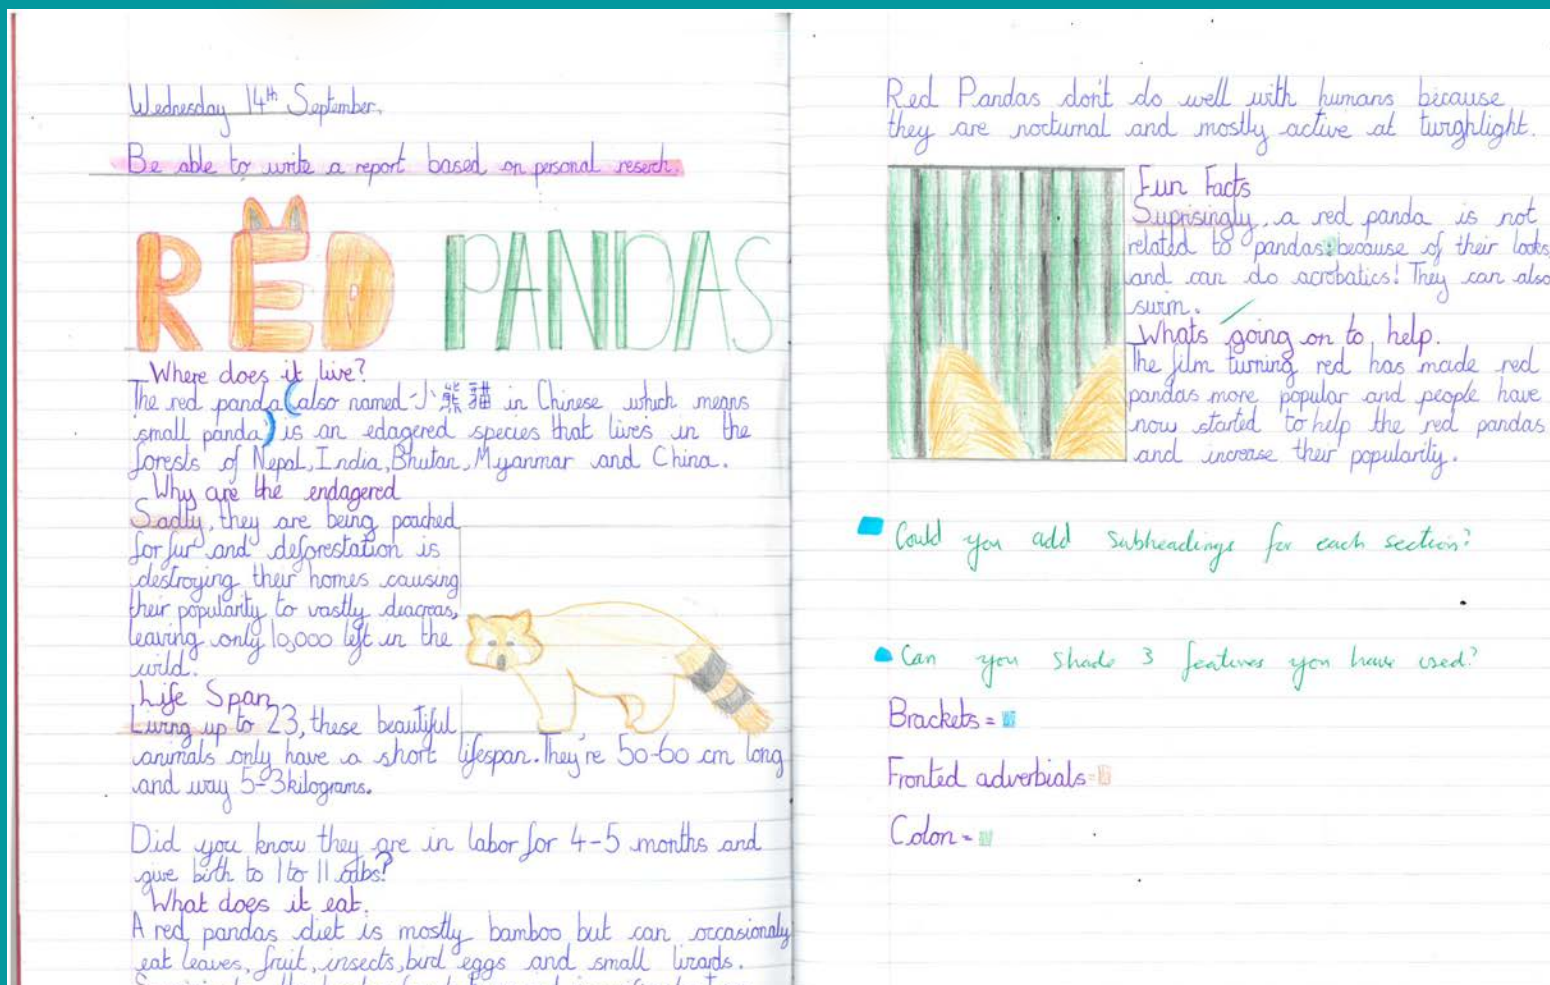 Wednesday 14th September.
Be able to write a report based on personal reserch.
RED PANDAS
Where does it live?
The red panda (also named 小熊貓 in Chinese which means
small panda) is an edagered species that lives in the
forests of Nepal, India, Bhutan, Myanmar and China.
Why are the endagered
Sadly, they are being poached
for fur and deforestation is
destroying their homes causing
their popularity to vastly deacreas,
leaving only 10,000 left in the
wild.
Life Span
Living up to 23, these beautiful
animals only have a short lifespan. They're 50-60 cm long
and way 5-3kilograms.
Did you know they are in labor for 4-5 months and
give birth to 1 to 11 cubs?
What does it eat.
A red pandas diet is mostly bamboo but can occasionaly
eat leaves, fruit, insects, bird eggs and small lizards.
Red Pandas don't do well with humans because
they are nocturnal and mostly active at twighlight.
Fun Facts
Suprisingly, a red panda is not
related to pandas: because of their looks
and can do acrobatics! They can also
swim.
Whats going on to help.
The film turning red has made red
pandas more popular and people have
now started to help the red pandas
and increase their popularity.
Could you add subheadings for each section?
Can you shade 3 features you have used?
Brackets =
Fronted adverbials =
Colon =